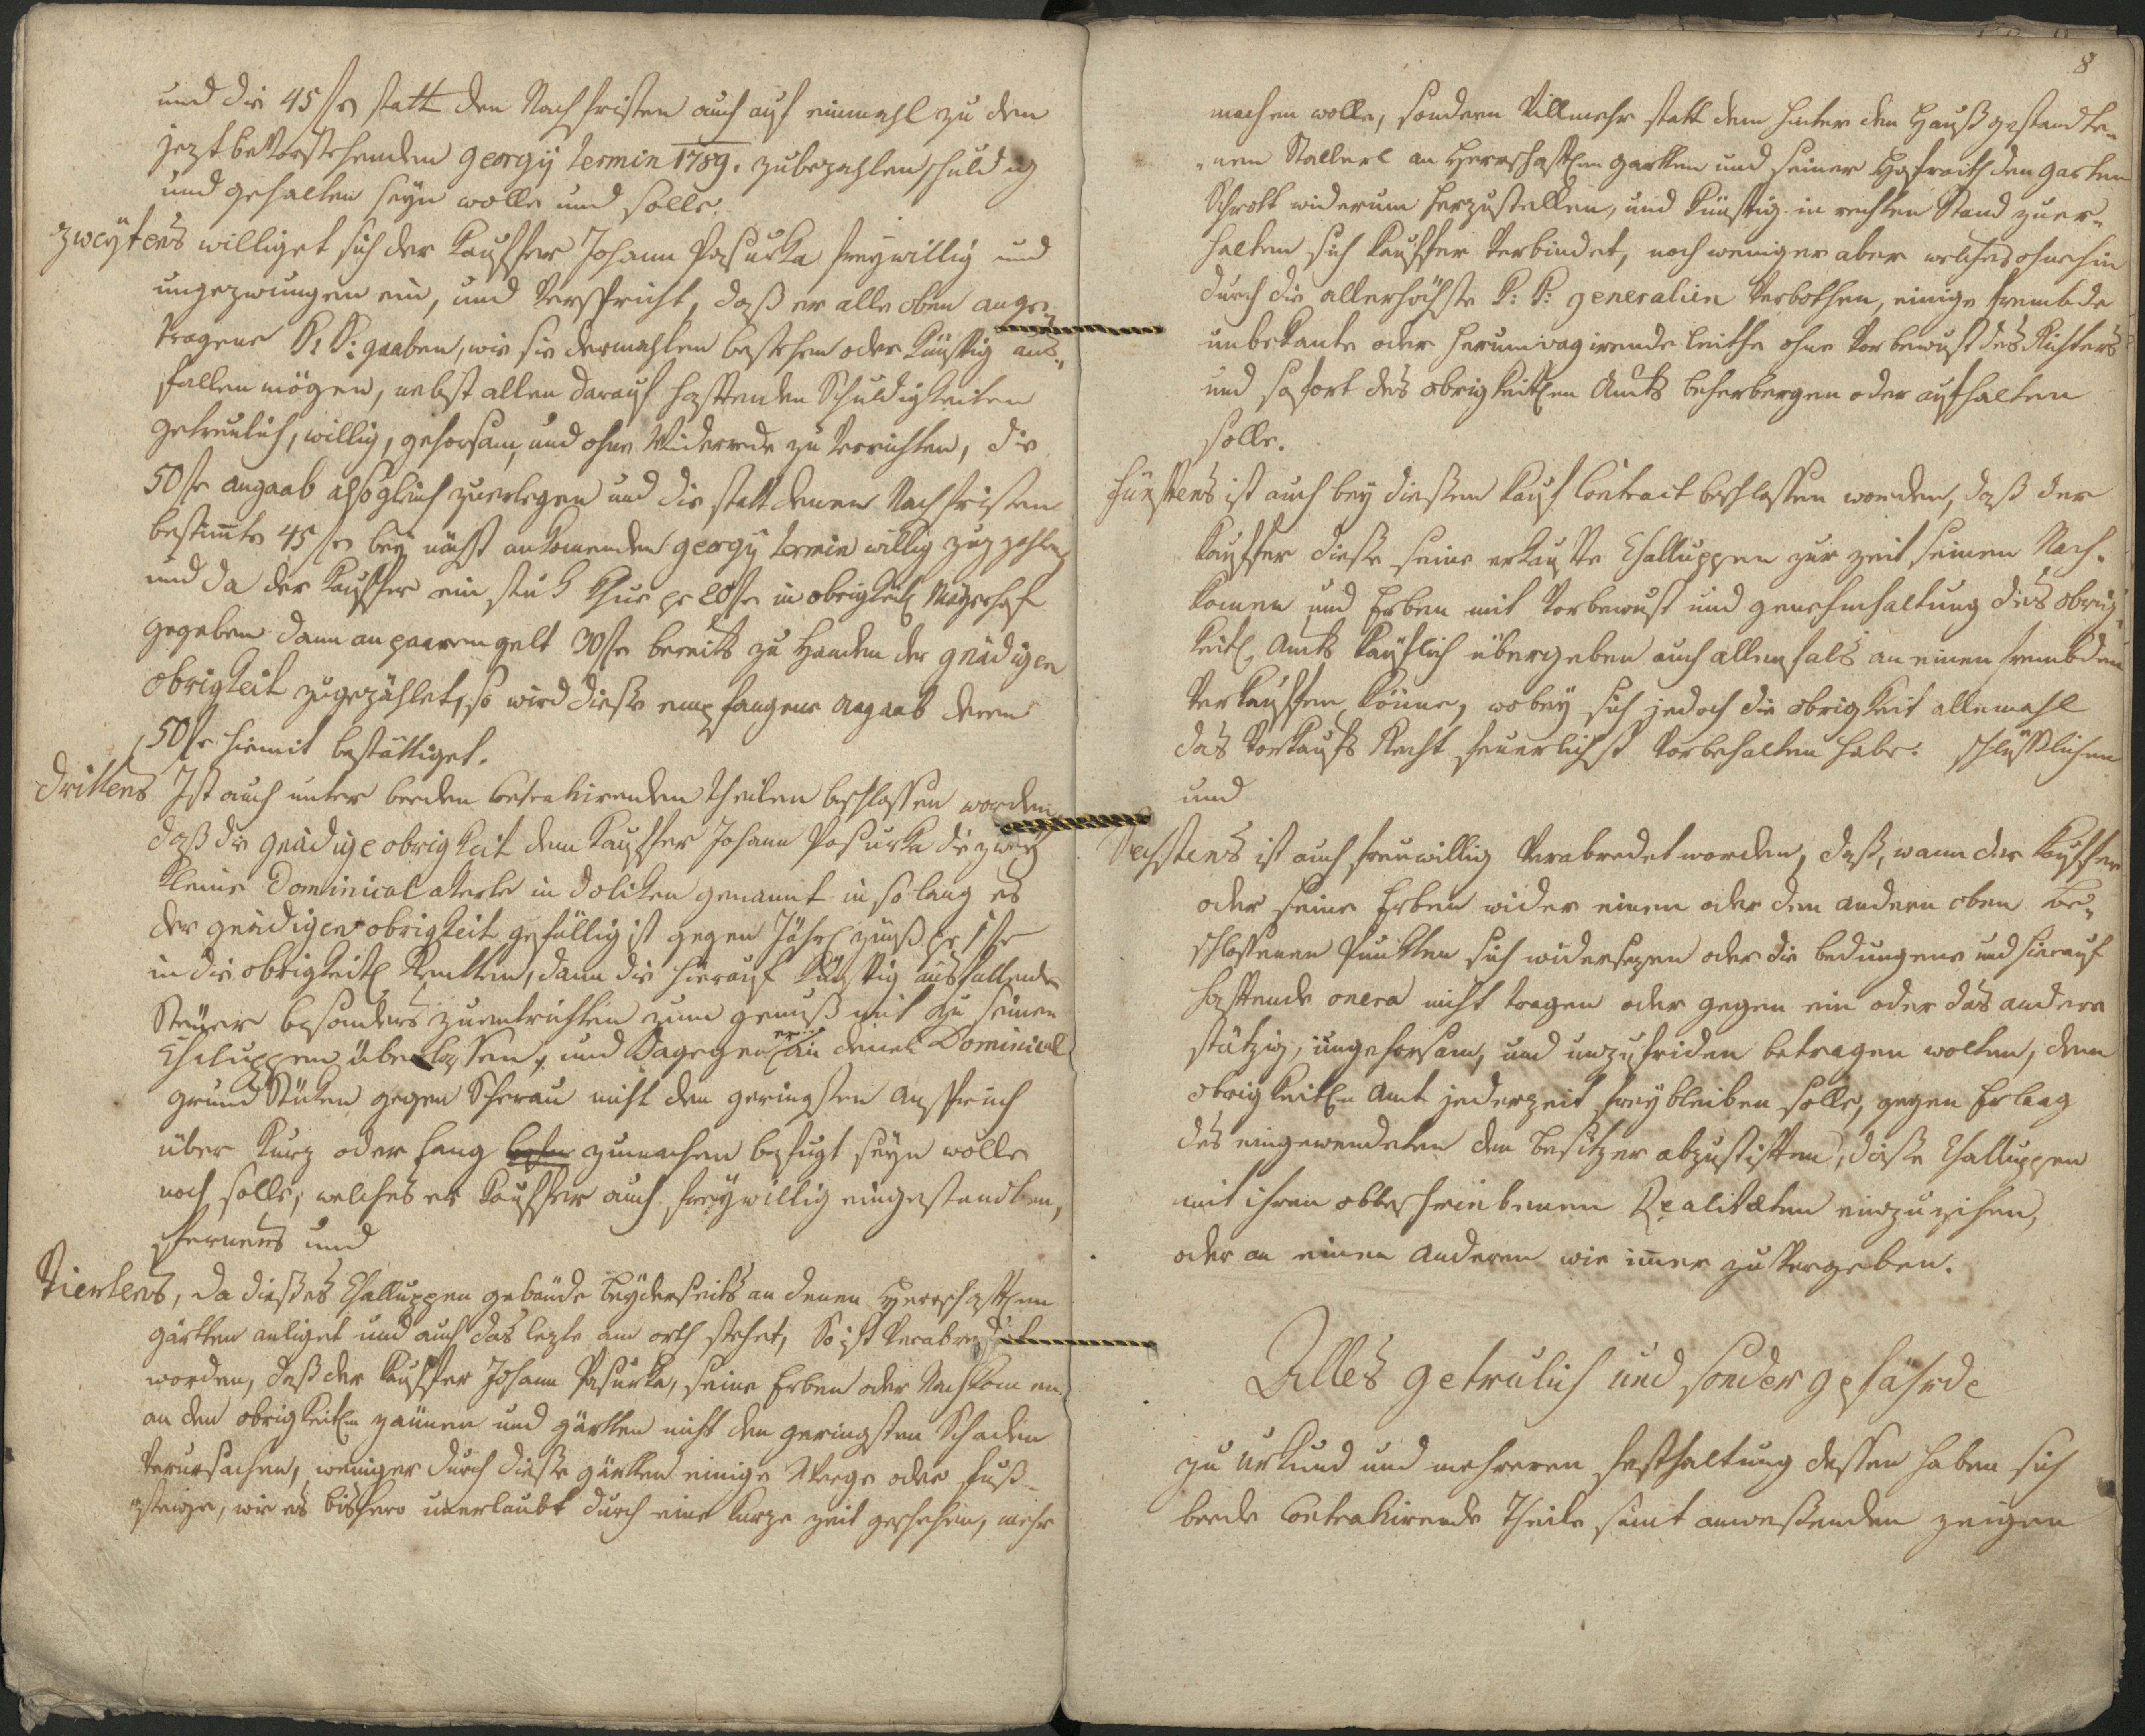 und die 45 f statt den Nachfristen auch auf einmahl zu dem
jezt bevorstehenden Georgÿ termin 1789. zubezahlen schuldig
und gehalten seÿn wolle und solle.
Zweÿtens williget sich der Kauffer Johann Pasurka freÿwillig und
ungezwungen ein, und verspricht, daß er alle oben ange-
tragene K: K: gaaben, wie sie dermahlen bestehen oder künftig aus-
fallen mögen, nebst allen darauf hafftenden Schuldigkeiten
getreulich, willig, gehorsam, und ohne Widerrede zu verrichten, die
50 f angaab alsogleich zuerlegen und die statt denen Nachfristen
bestimte 45 f beÿ nächst ankomenden Georgÿ termin willig zuzahlen,
und da der Kauffer ein stuk Khue pr 20 f in obrigkeitl Mayerhof
gegeben dann an paarem gelt 30 f bereits zu Handen der gnädigen
obrigkeit zugezählet, so wird diese empfangene angaab deren
50 f hiemit bestättiget.
Drittens Ist auch unter beeden contrahirenden theilen beschlossen worden,
daß die gnädige obrigkeit dem Kauffer Johann Pasurka die zweÿ
kleine Dominical akerle in Doliken genannt in so lang es
der gnädigen obrigkeit gefällig ist gegen Jährl zinß pr 1 f
in die obrigkeitl Rentten, dann die hierauf künftig ausfallende
Steuer besonders zuentrichten zum genuß mit zu seinen
Chaluppen überlassen, und dagegen er an denen Dominical
grund Stüken gegen Scherau nicht den geringsten anspruch
über kurz oder lang zumachen befugt seÿn wolle
noch solle, welches er Kauffer auch freÿwillig eingestandten,
fernens und
Viertens, da dießes Challuppen gebäude beÿderseits an denen Herrschaftlen
gärtten anliget und auch das lezte am orth stehet, So ist verabredet
worden, daß der Kauffer Johann Pasurka, seine Erben oder Nachkomen
an den obrigkeitlen zäunen und gärtten nicht den geringsten Schaden
verursachen, weniger durch diesse gärtten einige Weege oder fuß-
steige, wie es bishero unerlaubt durch eine kurze zeit geschehen, mehr
8
machen wolle, sondern villmehr statt dem hinter den Hauß gestandte-
nen Stallerl an Herrschaftlen gartten und seiner Hofraith den garten
Schrott widerum herzustellen, und künftig in rechten Stand zuer-
halten sich Kauffer verbindet, noch weniger aber welches ohnehin
durch die allerhöchste K: K: generalien verbothen, einige frembde
unbekante oder herumvagirende leithe ohne vorbewust des Richters
und sofort des obrigkeitlen Amts beherbergen oder aufhalten
solle.
Fünftens ist auch beÿ diesem Kauf Contract beschlossen worden, daß der
Kauffer diesse seine erkaufte Challuppen zur zeit seinen Nach-
komen und Erben mit vorbewust und genehmhaltung des obrig-
keitl Amts käuflich übergeben auch allenfals an einen frembden
verkauffen könne, wobeÿ sich jedoch die obrigkeit allemahl
das vorkaufs Recht feuerlichst vorbehalten habe. schlüßlichen
und
Sechstens ist auch freuwillig verabredet worden, daß, wann der Kauffer
oder seine Erben wider einen oder den andern oben be-
schlossenen Punkten sich widersezen oder die bedungene und hierauf
hafftende onera nicht tragen oder gegen ein oder das andere
stützig, ungehorsam, und unzufriden betragen wolten, dem
obrigkeitlen Amt jederzeit freÿ bleiben solle, gegen Erlaag
des eingewendeten den besitzer abzustiften, diesse Challuppen
mit ihren obbeschriebenen Realitæten einzuzihen,
oder an einen anderen wie imer zu vergeben.
Alles getreulich und sonder gefährde
zu Urkund und mehreren festhaltung dessen haben sich
beede Contrahirende Theile samt anwesenden zeigen